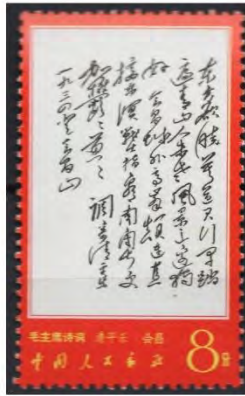 东方欲晓莫道君行早踏
遍青山人未老风景这边独
好会昌城外高峰颠连直
接东溟战士指看南粤更
加郁郁葱葱 调寄清平乐
一九三四 登会昌山
毛主席诗词 清平乐 会昌
中国人民邮政 8分